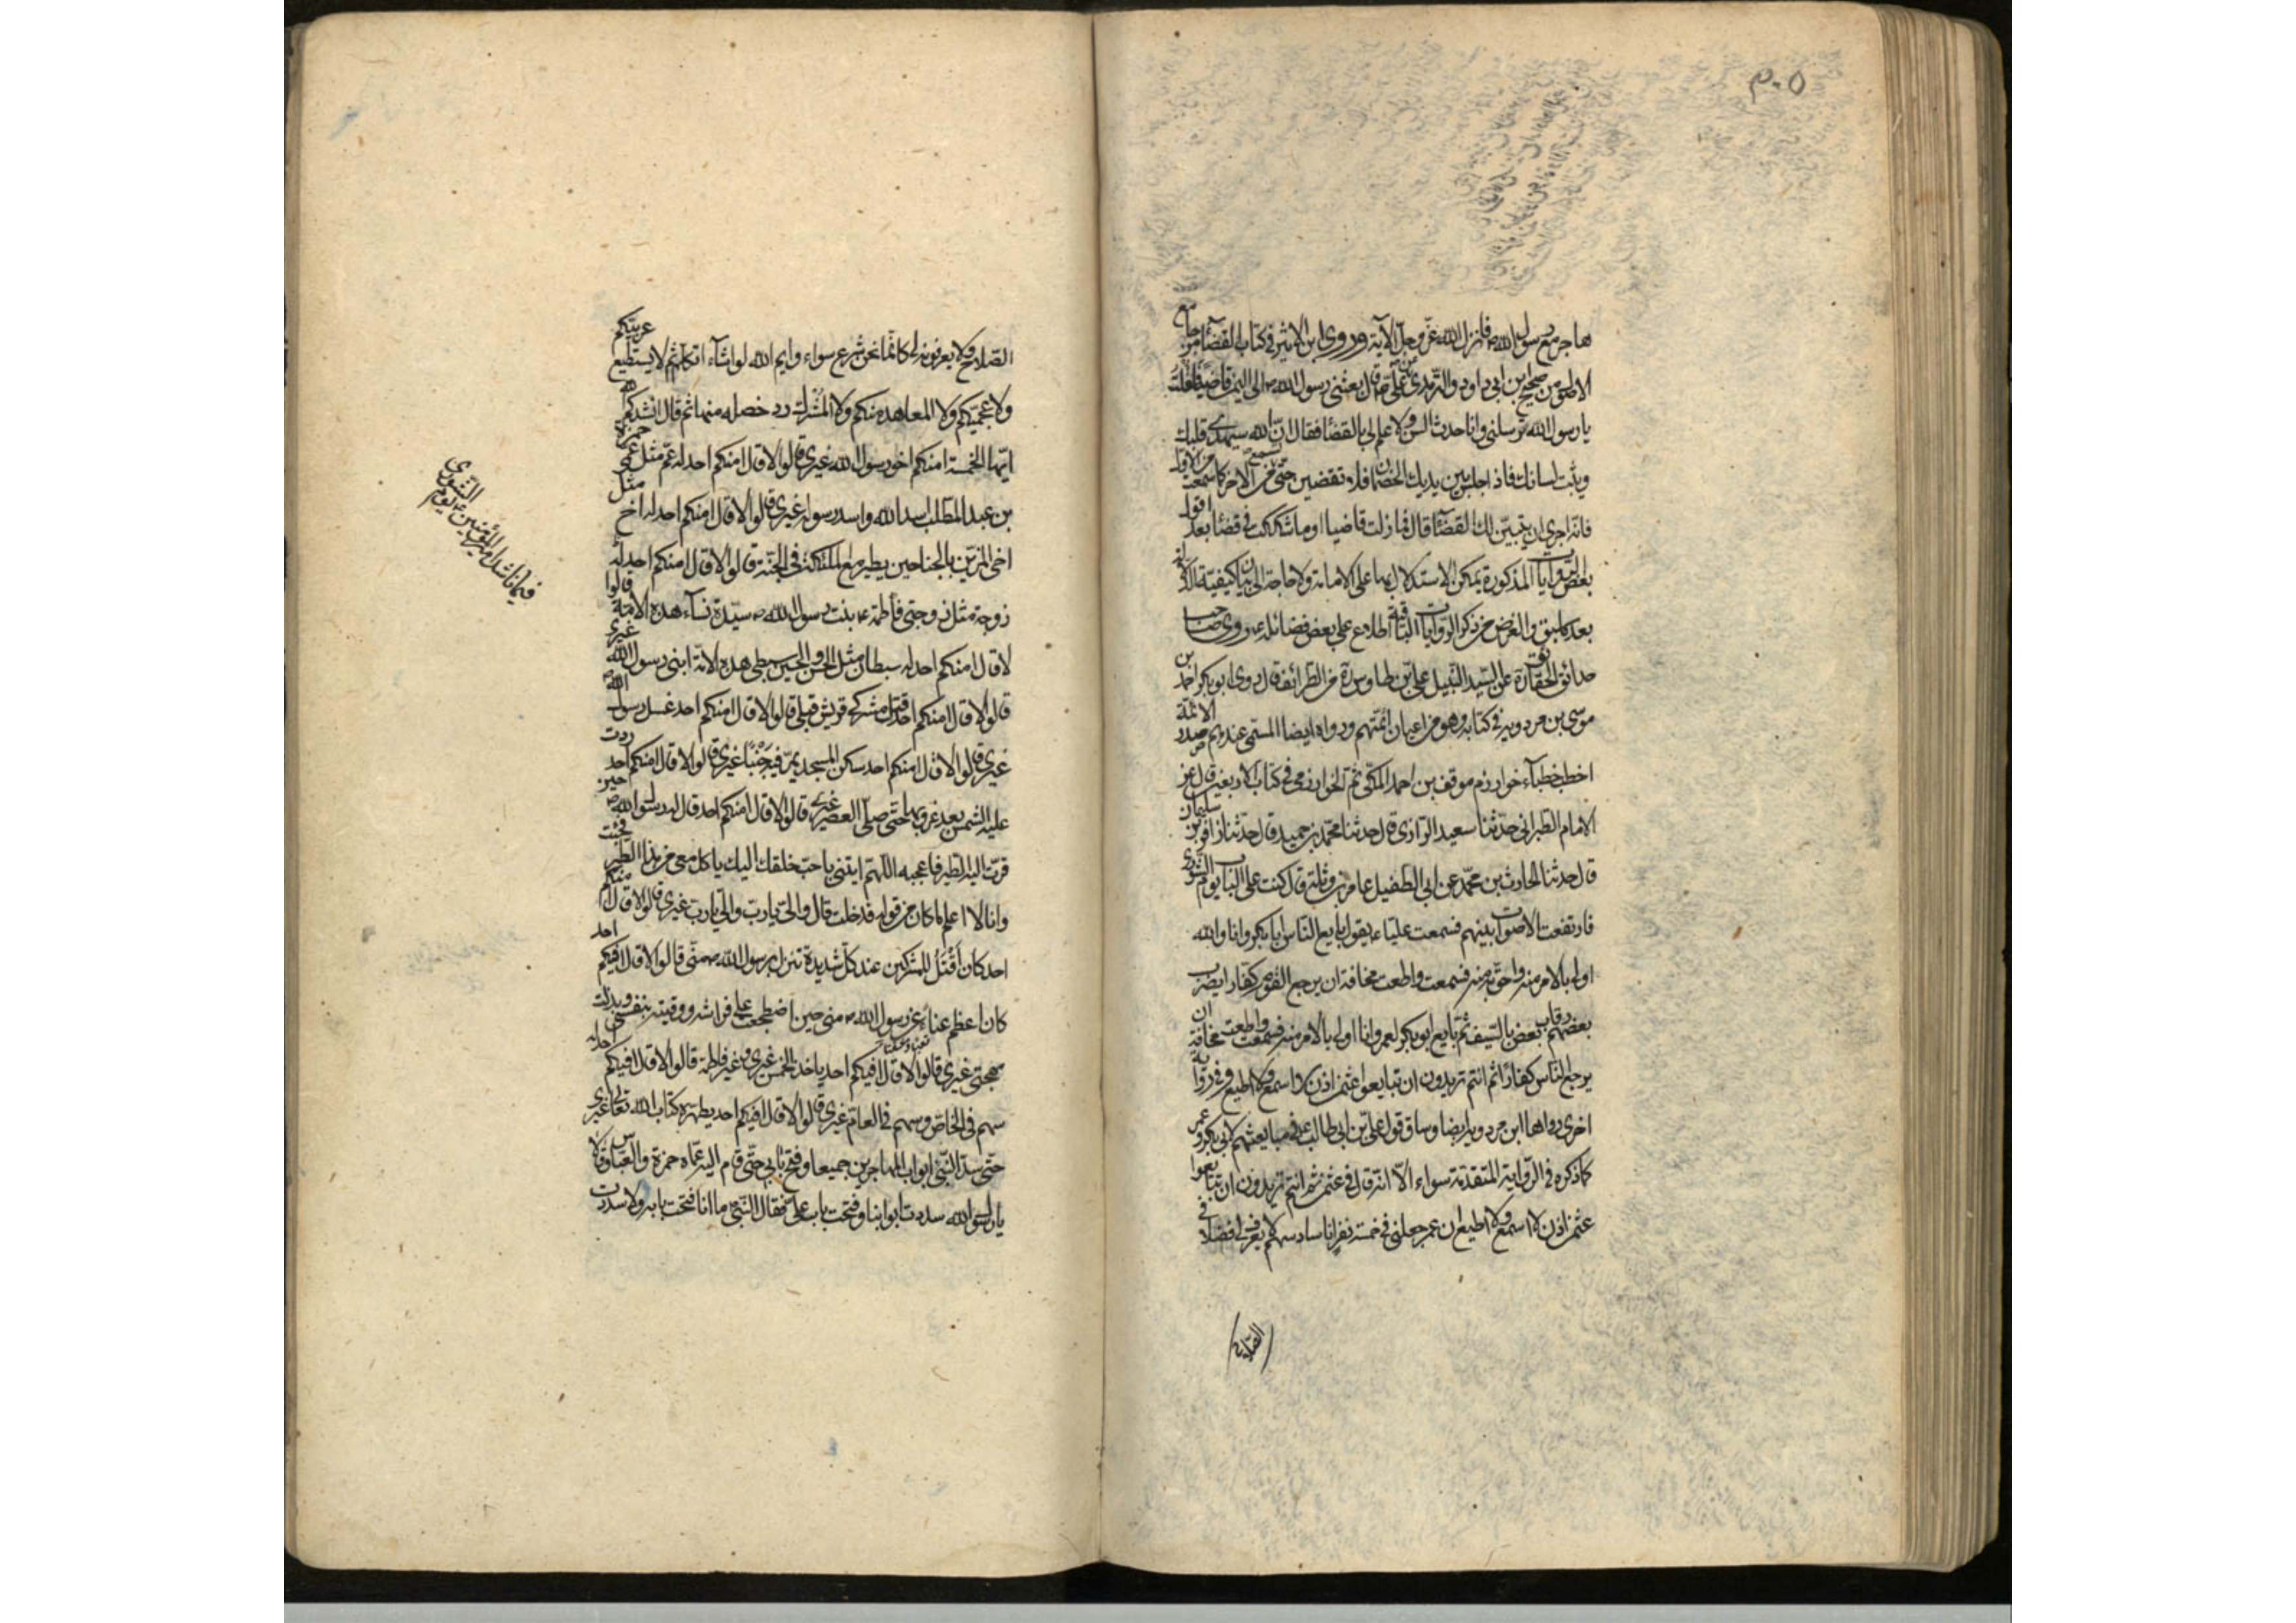 ٣٠٥
هاجر مع رسول الله ص فانزل الله عز وجل الآية وروى ابن الاثير في كتاب القضاء من جامع
الاصول من صحيح ابن ابي داود والترمذي عن علي ع قال بعثني رسول الله ص الى اليمن قاضيا فقلت
يا رسول الله ترسلني وانا حدث السن ولا علم لي بالقضاء فقال ان الله سيهدي قلبك
ويثبت لسانك فاذا جلس بين يديك الخصمان فلا تقضين حتى تسمع من الاخر كما سمعت من الاول
فانه احرى ان يتبين لك القضاء قال فما زلت قاضيا او ما شككت في قضاء بعد اقول
بعض الروايات المذكورة يمكن الاستدلال بها على الامامة ولا حاجة الى بيان كيفية الدلالة
بعد ما سبق والغرض من ذكر الروايات الباقية اطلاع على بعض فضائله ع وروى صاحب
حدائق الحقائق عن السيد النبيل علي بن طاوس ره من الطرائف قال روى ابو بكر احمد بن
موسى بن مردويه في كتابه وهو من اعيان ائمتهم ورواه ايضا المسمى عندهم صدر الائمة
اخطب خطباء خوارزم موفق بن احمد المكي ثم الخوارزمي في كتاب الاربعين قال عن
الامام الطبراني حدثنا سعيد الرازي قال حدثنا محمد بن حميد قال حدثنا زافر بن سليمان
قال حدثنا الحارث بن محمد عن ابي الطفيل عامر بن وثلة قال كنت على الباب يوم الشورى
فارتفعت الاصوات بينهم فسمعت عليا ع يقول بايع الناس ابا بكر وانا والله
اولى بالامر منه واحق به منه فسمعت واطعت مخافة ان يرجع القوم كفارا يضرب
بعضهم رقاب بعض بالسيف ثم بايع ابو بكر لعمر وانا اولى بالامر منه فسمعت واطعت مخافة ان
يرجع الناس كفارا ثم انتم تريدون ان تبايعوا عثمن اذن لا اسمع ولا اطيع وفي رواية
اخرى رواها ابن مردويه ايضا وساق قول علي بن ابي طالب ع في مبايعتهم لابي بكر وعمر
كما ذكره في الرواية المتقدمة سواء الا انه قال في عثمن ثم انتم تريدون ان تبايعوا
عثمن اذن لا اسمع ولا اطيع ان عمر جعلني في خمسة نفر انا سادسهم لا يعرف لي فضلا في
الصلاح
الصلاح ولا يعرفونه لي كانما نحن شرع سواء وايم الله لو اشاء ان اتكلم ثم لا يستطيع عربيكم
ولا عجميكم ولا المعاهد منكم ولا المشرك رد خصلة منها ثم قال انشدكم الله
ايها الخمسة امنكم اخو رسول الله غيري قالوا لا قال امنكم احد له عم مثل عمي حمزة
بن عبد المطلب اسد الله واسد رسوله غيري قالوا لا قال امنكم احد له اخ مثل
اخي المزين بالجناحين يطير مع الملئكة في الجنة قالوا لا قال امنكم احد له
زوجة مثل زوجتي فاطمة ع بنت رسول الله ص سيدة نساء هذه الامة قالوا
لا قال امنكم احد له سبطان مثل الحسن والحسين سبطي هذه الامة ابني رسول الله غيري
قالوا لا قال امنكم احد قتل مشركي قريش قبلي قالوا لا قال امنكم احد غسل رسول الله ص
غيري قالوا لا قال امنكم احد سكن المسجد يمر فيه جنبا غيري قالوا لا قال امنكم احد ردت
عليه الشمس بعد غروبها حتى صلى العصر غيري قالوا لا قال امنكم احد قال له رسول الله ص حين
قرب اليه الطير فاعجبه اللهم ايتني باحب خلقك اليك ياكل معي من هذا الطير فجئت
وانا لا اعلم ما كان من قوله فدخلت قال والي يا رب والي يا رب غيري قالوا لا قال امنكم
احد كان اقتل للمشركين عند كل شديدة تنزل برسول الله ص مني قالوا لا قال افيكم احد
كان اعظم عناء عن رسول الله ص مني حين اضطجعت على فراشه ووقيته بنفسي وبذلت
مهجتي غيري قالوا لا قال افيكم احد ياخذ الخمس غيري وغير فاطمة قالوا لا قال افيكم احد له
سهم في الخاص وسهم في العام غيري قالوا لا قال افيكم احد يطهره كتاب الله تعالى غيري
حتى سد النبي ابواب المهاجرين جميعا وفتح بابي حتى قام اليه عماه حمزة والعباس وقالا
يا رسول الله سددت ابوابنا وفتحت باب علي فقال النبي ما انا فتحت بابه ولا سددت
فيما ناشد امير المؤمنين ع يوم
الشورى